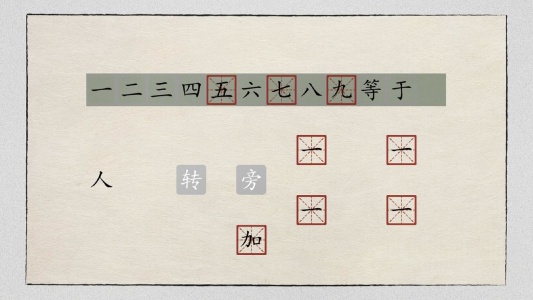 一二三四五六七八九等于
一 一
人 转 旁
一 一
加